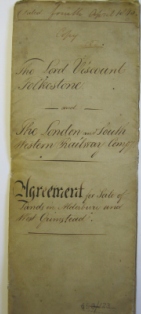 Copy
The Lord Viscount
Folkestone
and
The London and South
Western Railway Comp
Agreement for Sale of
Lands in Alderbury and
West Grimstead